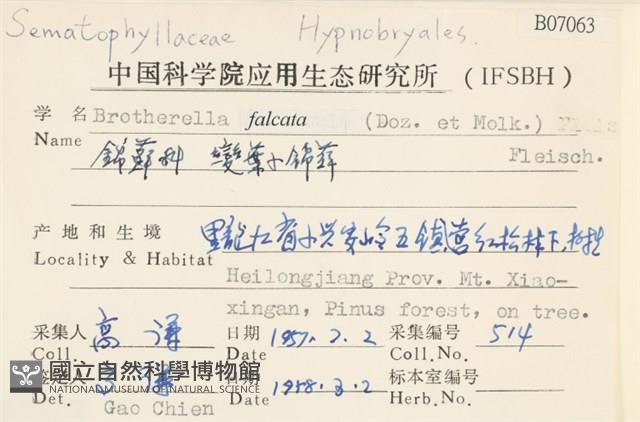 Sematophyllaceae Hypnobryales. B07063
中国科学院应用生态研究所 (IFSBH)
学 名 Brotherella falcata (Doz. et Molk.)
Name 錦蘚科 變葉小錦蘚 Fleisch.
产地和生境 黑龍江省小兴安岭五鎮营红松林下,树生
Locality & Habitat Heilongjiang Prov. Mt. Xiao-
xingan, Pinus forest, on tree.
采集人 高谦 日期 1957. 7. 2 采集编号 514
Coll. Date Coll.No.
國立自然科學博物館
NATIONAL MUSEUM OF NATURAL SCIENCE
日期 1958. 3. 2 标本室编号
Det. Gao Chien Date Herb.No.